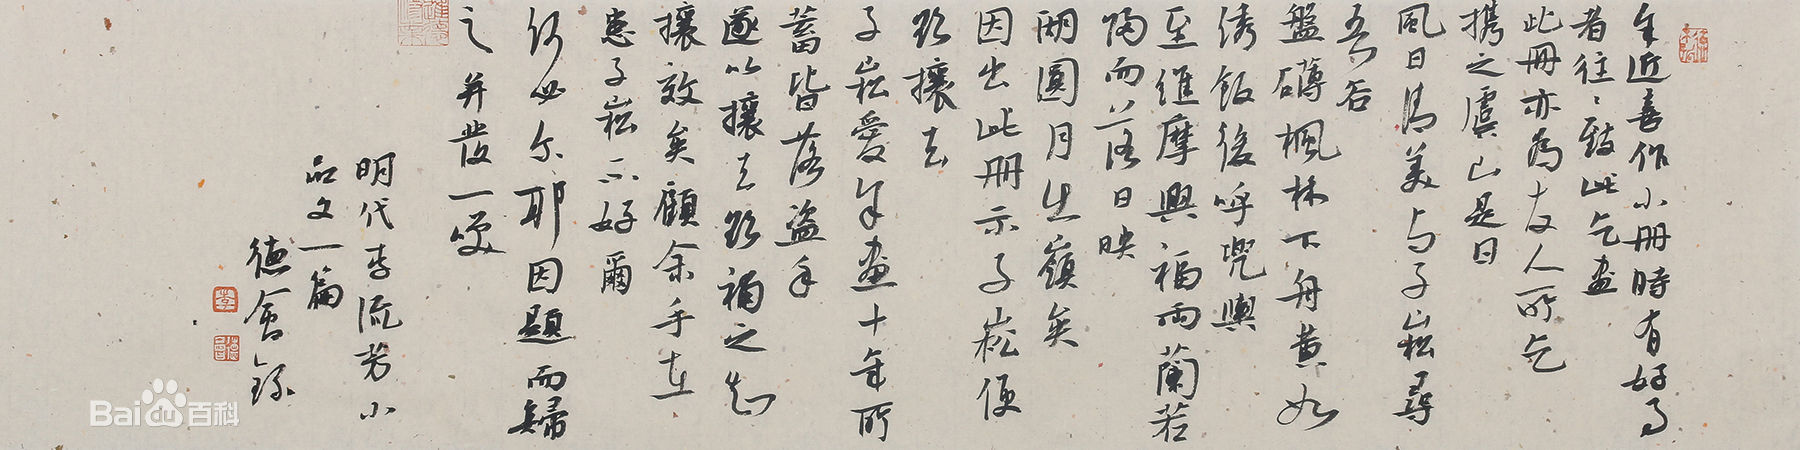 年近喜作小冊時有好事
者往〻致此乞畫
此冊亦為友人所乞
携之虞山是日
風日清美与子崧尋
吾谷
盤礴楓林下舟黄如
綉飯後呼兜輿
至維摩興福兩蘭若
陽而落日映
兩圓月生嶺矣
因出此冊示子崧便
欲攘去
子崧愛余畫十年所
蓄皆落盗手
遂以攘去欲補之
攘效矣顧余手在
患子崧不好爾
何必尔耶因題而歸
之并發一笑
明代李流芳小
品文一篇
德會録
Bai百科